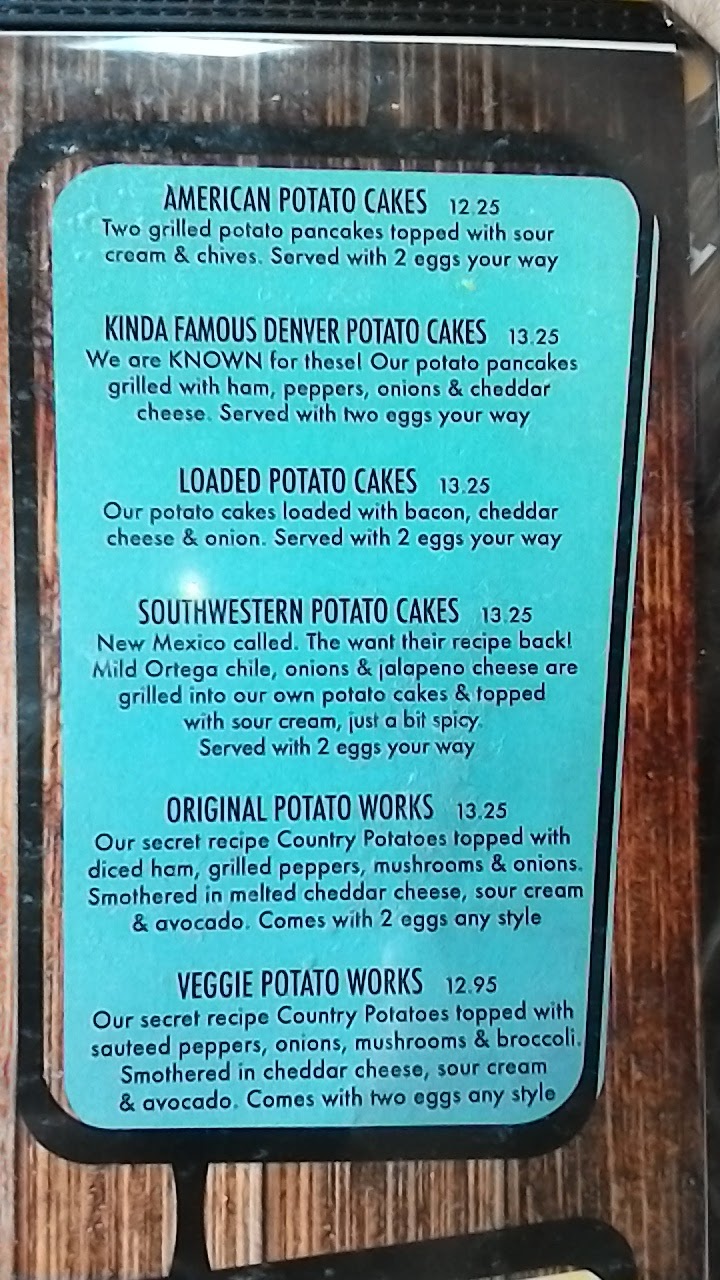 AMERICAN POTATO CAKES 12.25
Two grilled potato pancakes topped with sour
cream & chives. Served with 2 eggs your way
KINDA FAMOUS DENVER POTATO CAKES 13.25
We are KNOWN for these! Our potato pancakes
grilled with ham, peppers, onions & cheddar
cheese. Served with two eggs your way
LOADED POTATO CAKES 13.25
Our potato cakes loaded with bacon, cheddar
cheese & onion. Served with 2 eggs your way
SOUTHWESTERN POTATO CAKES 13.25
New Mexico called. The want their recipe back!
Mild Ortega chile, onions & jalapeno cheese are
grilled into our own potato cakes & topped
with sour cream, just a bit spicy.
Served with 2 eggs your way
ORIGINAL POTATO WORKS 13.25
Our secret recipe Country Potatoes topped with
diced ham, grilled peppers, mushrooms & onions.
Smothered in melted cheddar cheese, sour cream
& avocado. Comes with 2 eggs any style
VEGGIE POTATO WORKS 12.95
Our secret recipe Country Potatoes topped with
sauteed peppers, onions, mushrooms & broccoli.
Smothered in cheddar cheese, sour cream
& avocado. Comes with two eggs any style